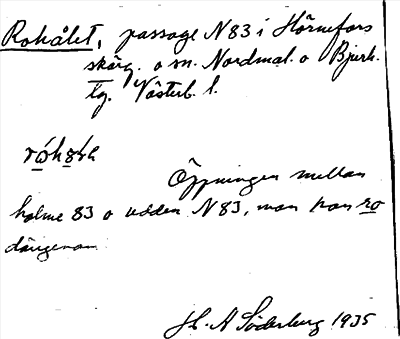 Rohålet, passage N 83 i Hörnefors
skärg. o sn. Nordmal. o Bjurh.
tg. Västerb. l.
Öppningen mellan
holme 83 o udden N 83, man kan ro
därigenom
H. A Söderberg 1935